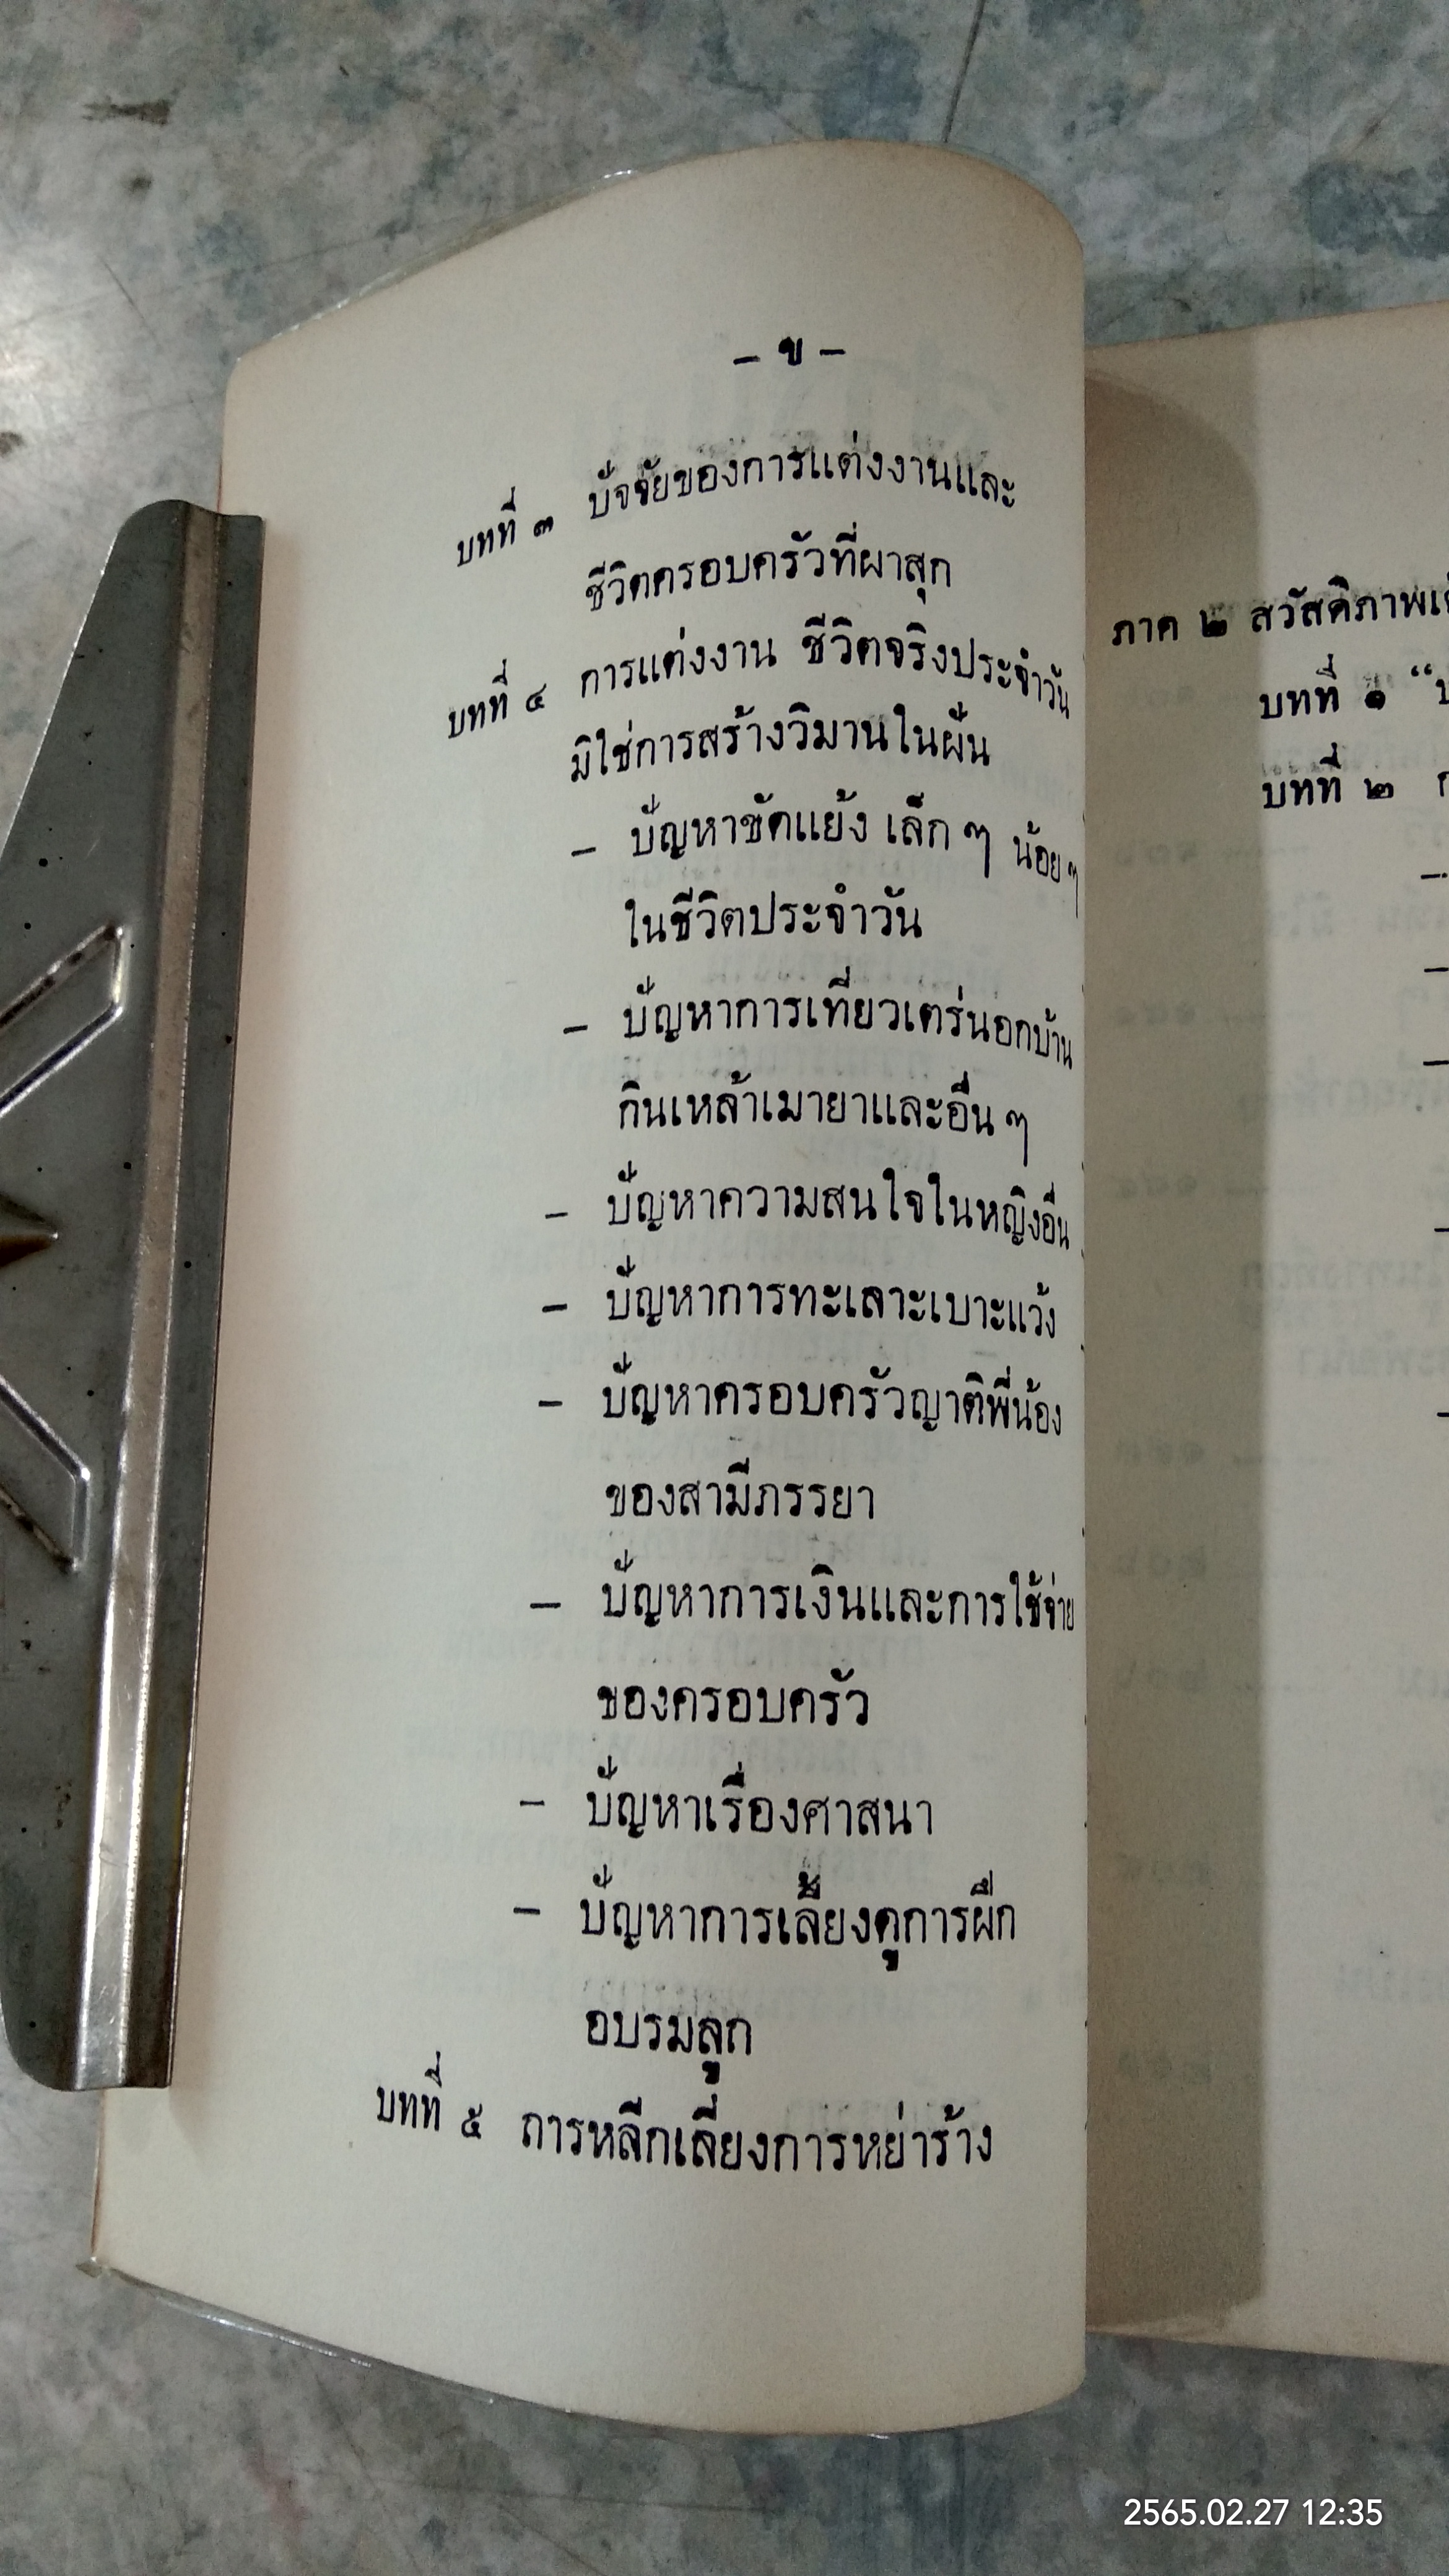 - ข -
บทที่ ๓ ปัจจัยของการแต่งงานและ
ชีวิตครอบครัวที่ผาสุก
บทที่ ๔ การแต่งงาน ชีวิตจริงประจำวัน
มิใช่การสร้างวิมานในฝัน
- ปัญหาขัดแย้ง เล็ก ๆ น้อย ๆ
ในชีวิตประจำวัน
- ปัญหาการเที่ยวเตร่นอกบ้าน
กินเหล้าเมายาและอื่น ๆ
- ปัญหาความสนใจในหญิงอื่น
- ปัญหาการทะเลาะเบาะแว้ง
- ปัญหาครอบครัวญาติพี่น้อง
ของสามีภรรยา
- ปัญหาการเงินและการใช้จ่าย
ของครอบครัว
- ปัญหาเรื่องศาสนา
- ปัญหาการเลี้ยงดูการฝึก
อบรมลูก
บทที่ ๕ การหลีกเลี่ยงการหย่าร้าง
ภาค ๒ สวัสดิภาพ
บทที่ ๑
บทที่ ๒
2565.02.27 12:35